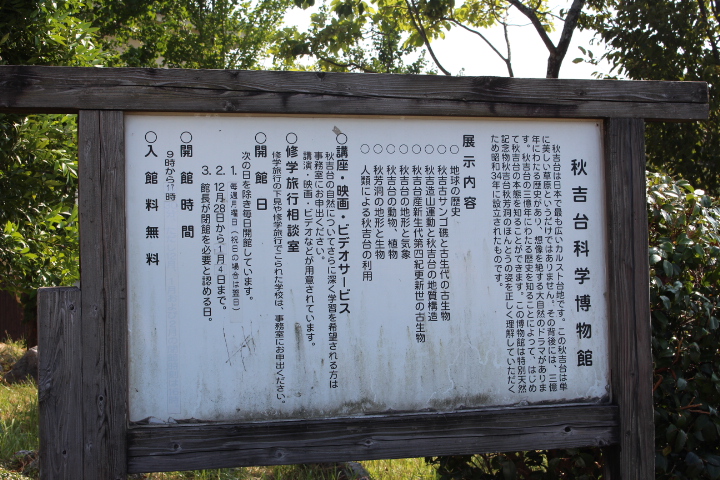 秋吉台科学博物館
秋吉台は日本で最も広いカルスト台地です。この秋吉台は単
に美しい草原というだけではありません。その背後には、三億
年にわたる歴史があり、想像を絶する大自然のドラマがありま
す。秋吉台の三億年にわたる歴史を知ることによって、はじめ
て秋吉台の本態を知ることができます。この博物館は特別天然
記念物秋吉台秋芳洞のほんとうの姿を正しく理解していただく
ため昭和34年に設立されたものです。
展示内容
○地球の歴史
○秋吉台のサンゴ礁と古生代の古生物
○秋吉造山運動と秋吉台の地質構造
○秋吉台産新生代第四紀更新世の古生物
○秋吉台の地形と気象
○秋吉台の動物、植物
○秋芳洞の地形と生物
○人類による秋吉台の利用
○講座・映画・ビデオサービス
秋吉台の自然についてさらに深く学習を希望される方は
事務室にお申出ください。
講演・映画・ビデオなどが用意されています。
○修学旅行相談室
修学旅行の下見や修学旅行でこられた学校は、事務室にお申出ください。
○開館日
次の日を除き毎日開館しています。
1．毎週月曜日（祝日の場合は翌日）
2．12月28日から1月4日まで。
3．館長が閉館を必要と認める日。
○開館時間
9時から17時
○入館料無料